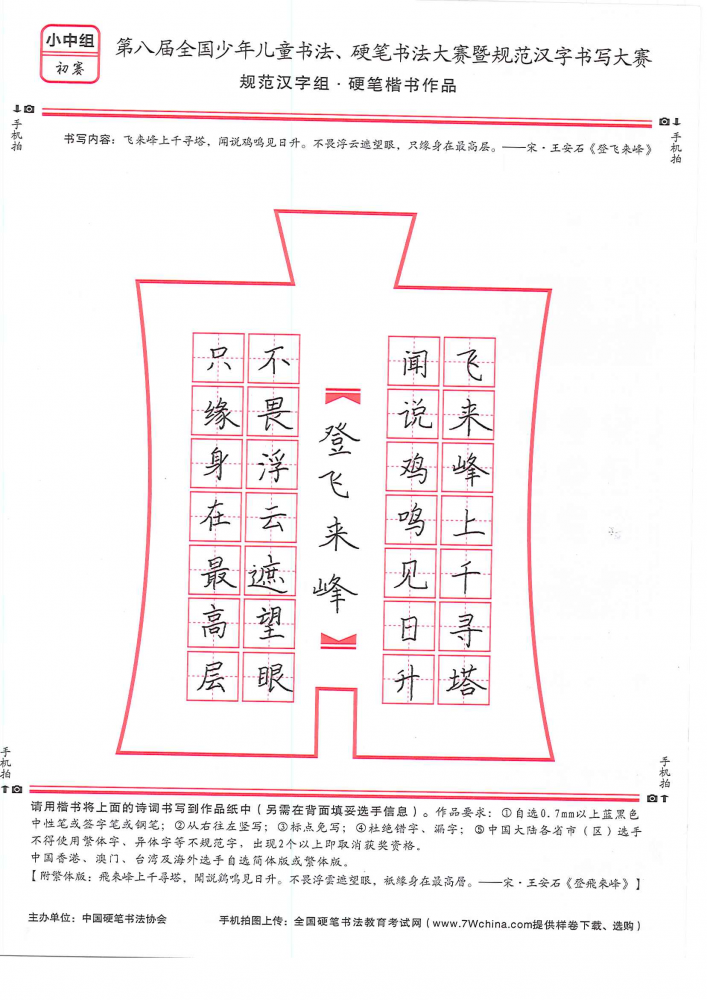 小中组
初赛
第八届全国少年儿童书法、硬笔书法大赛暨规范汉字书写大赛
规范汉字组·硬笔楷书作品
手机拍
手机拍
书写内容：飞来峰上千寻塔，闻说鸡鸣见日升。不畏浮云遮望眼，只缘身在最高层。——宋·王安石《登飞来峰》
飞来峰上千寻塔
闻说鸡鸣见日升
登飞来峰
不畏浮云遮望眼
只缘身在最高层
手机拍
手机拍
请用楷书将上面的诗词书写到作品纸中（另需在背面填妥选手信息）。作品要求：①自选0.7mm以上蓝黑色
中性笔或签字笔或钢笔；②从右往左竖写；③标点免写；④杜绝错字、漏字；⑤中国大陆各省市（区）选手
不得使用繁体字、异体字等不规范字，出现2个以上即取消获奖资格。
中国香港、澳门、台湾及海外选手自选简体版或繁体版。
【附繁体版：飛來峰上千尋塔，聞說鷄鳴見日升。不畏浮雲遮望眼，衹緣身在最高層。——宋·王安石《登飛來峰》】
主办单位：中国硬笔书法协会
手机拍图上传：全国硬笔书法教育考试网（www.7Wchina.com提供样卷下载、选购）